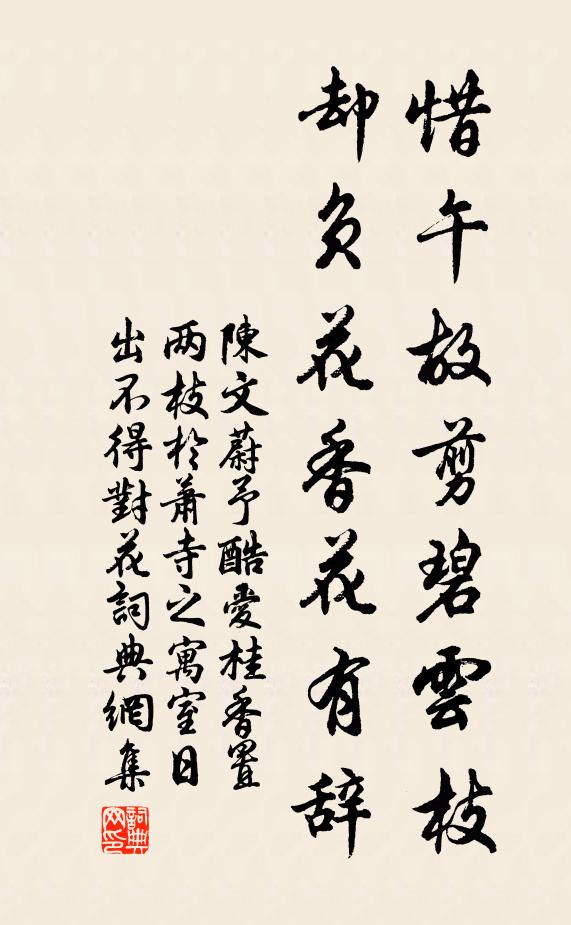 惜午故剪碧雲枝
却负花香花有辞
陳文蔚予酷愛桂香置
两枝於蕭寺之寓室日
出不得對花詞典網集
詞典
网印